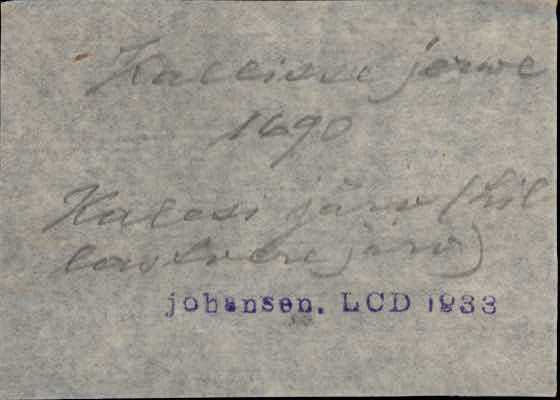 Kaleisse jerwe
1690
Kalesi järv (Kil
lavere järv)
johansen. LCD 1933